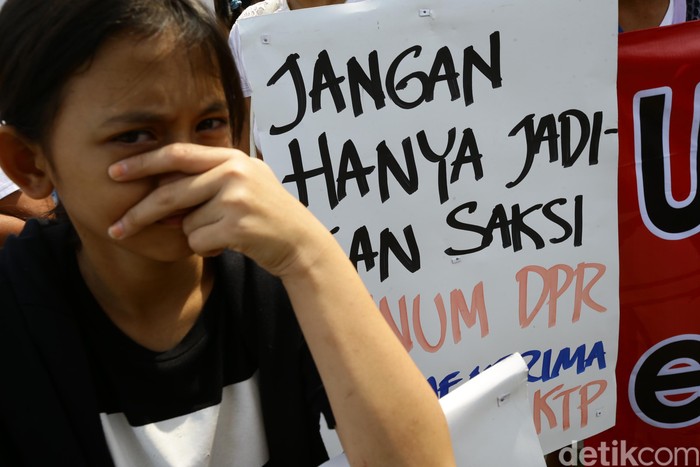 JANGAN
HANYA JADI-
KAN SAKSI
NUM DPR
RIMA
KTP
U
e
detikcom